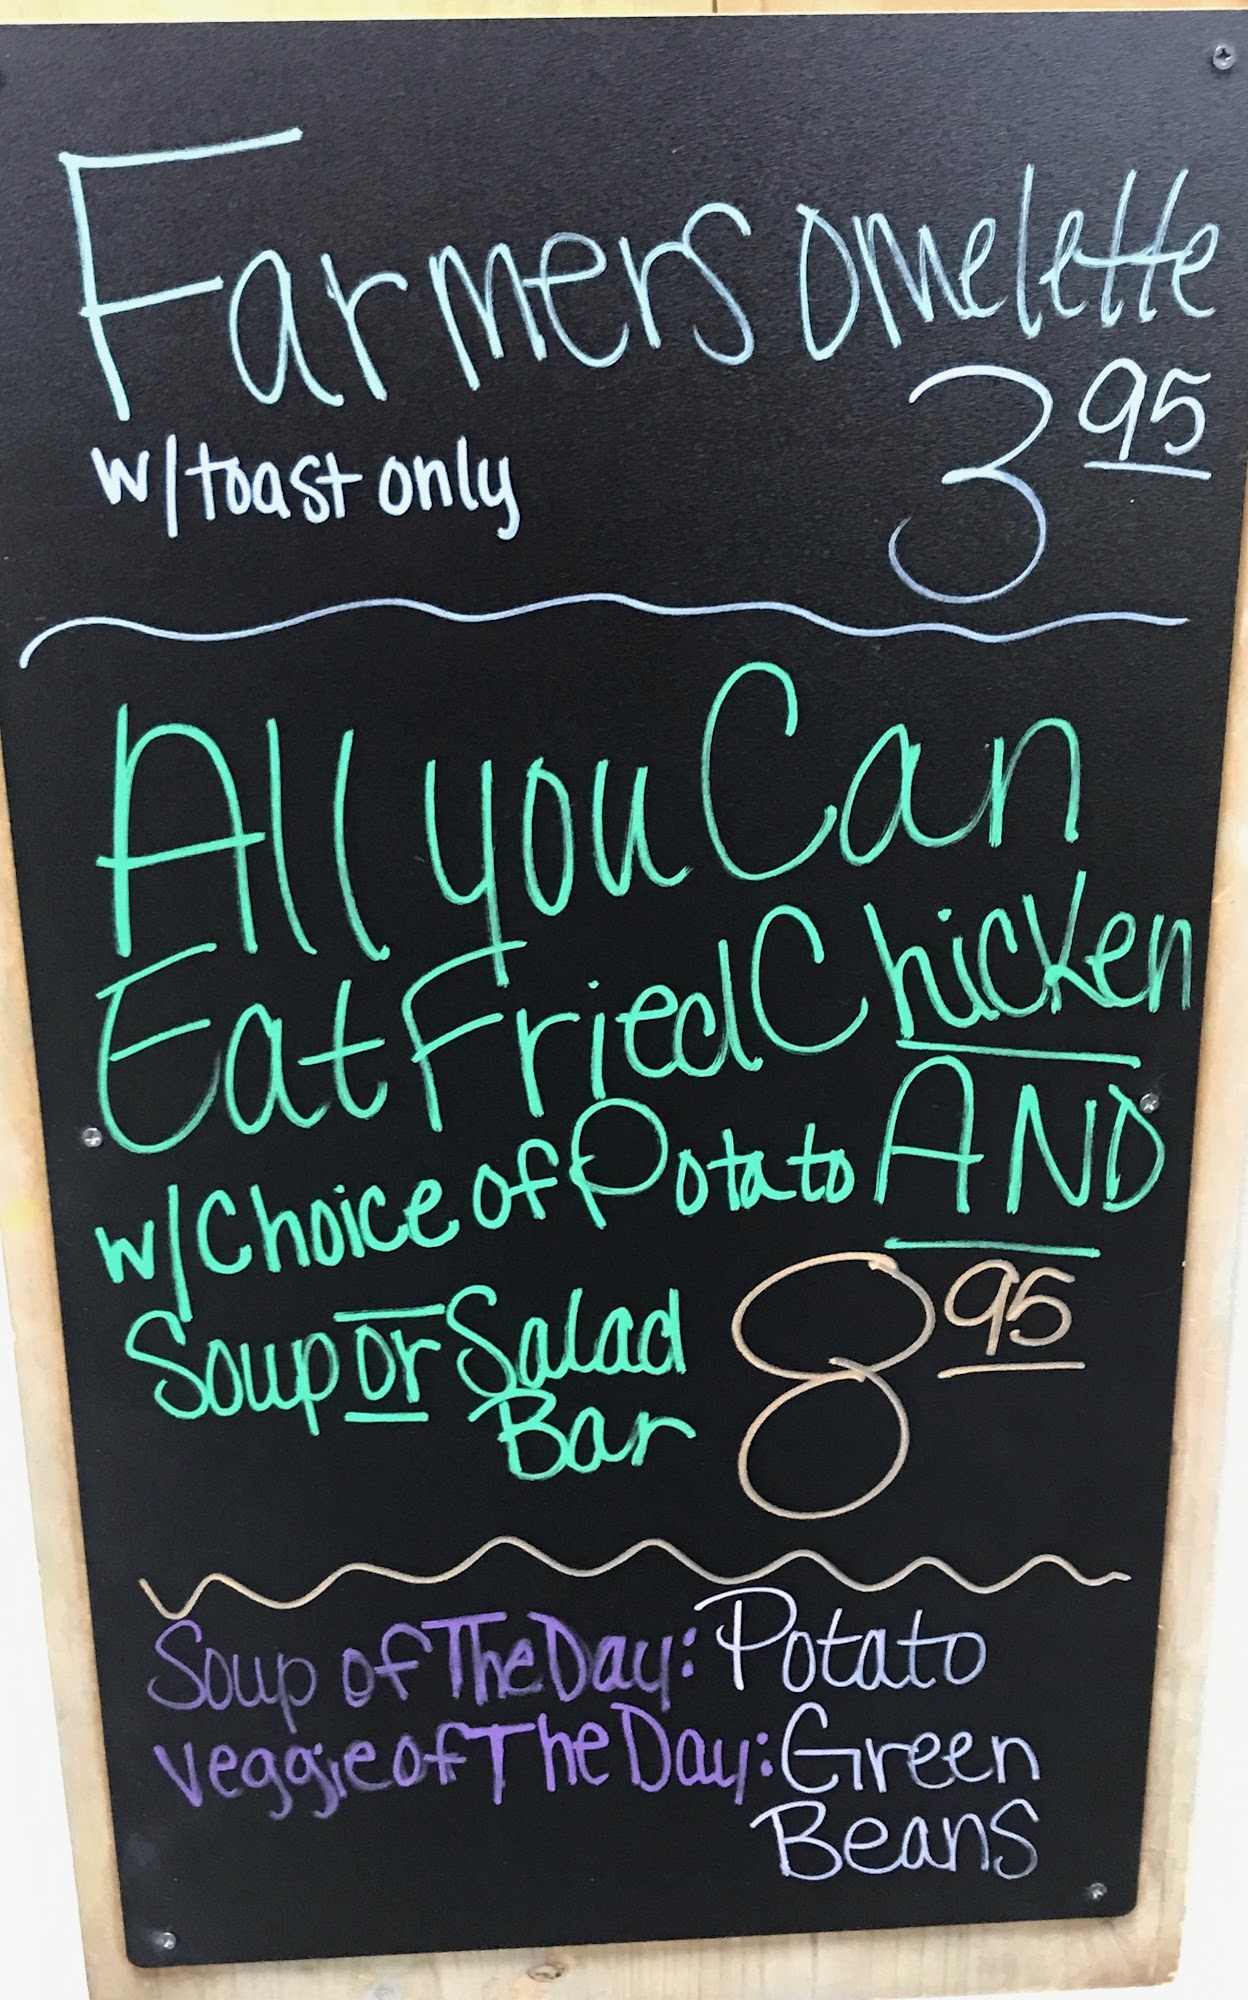 Farmers omelette
w/toast only 3 95
All you Can
Eat Fried Chicken
w/Choice of Potato AND
Soup or Salad
Bar 8 95
Soup of The Day: Potato
Veggie of The Day: Green
Beans